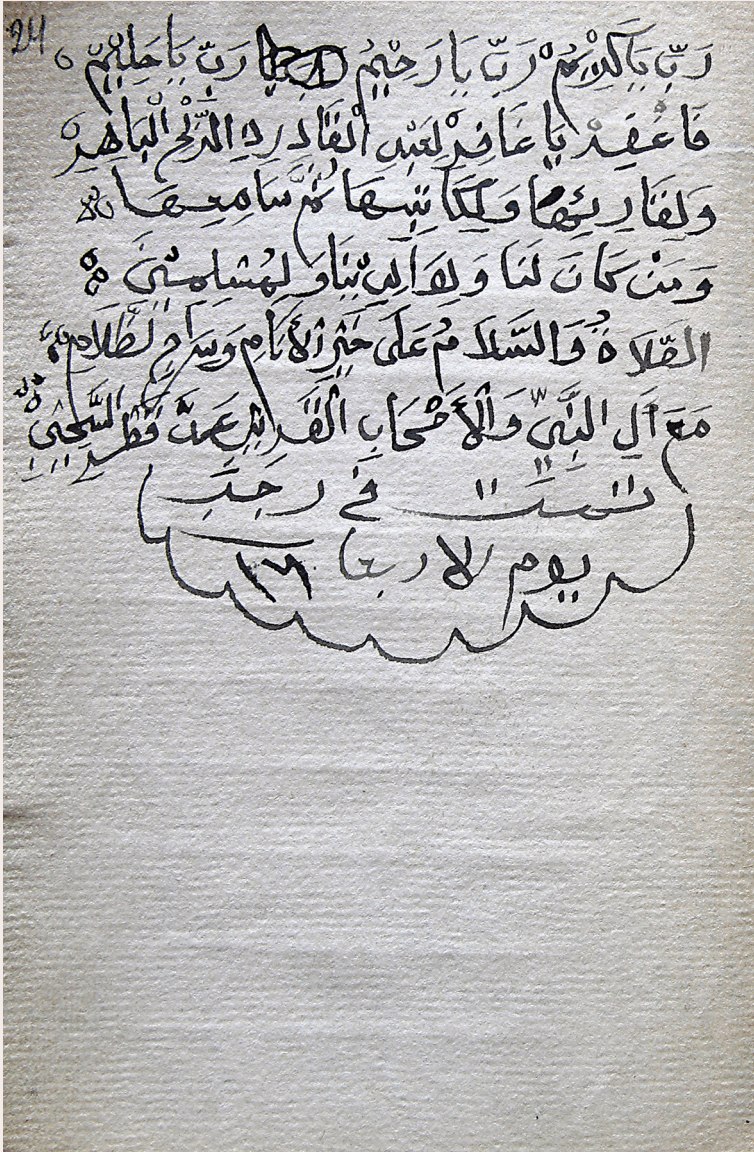 24
رَبِّ يَا كَرِيمُ رَبِّ يَا رَحِيْمُ رَبِّ يَا حَلِيْمُ
فَاغْفِرْ يَا غَافِرْ لِعَبْدِ الْقَادِرِ
وَلِقَارِئِهَا وَلِكَاتِبِهَا ثُمَّ سَامِعِهَا
وَمَنْ كَانَ لَنَا وَلِوَالِدَيْنَا وَلِمُسْلِمِيْنَ
الصَّلَاةُ وَالسَّلَامُ عَلَى خَيْرِ الْأَنَامِ وَسِرَاجِ الظَّلَامِ
مَعَ آلِ النَّبِيِّ وَالْأَصْحَابِ
تمت في رجب
يوم الاربعا